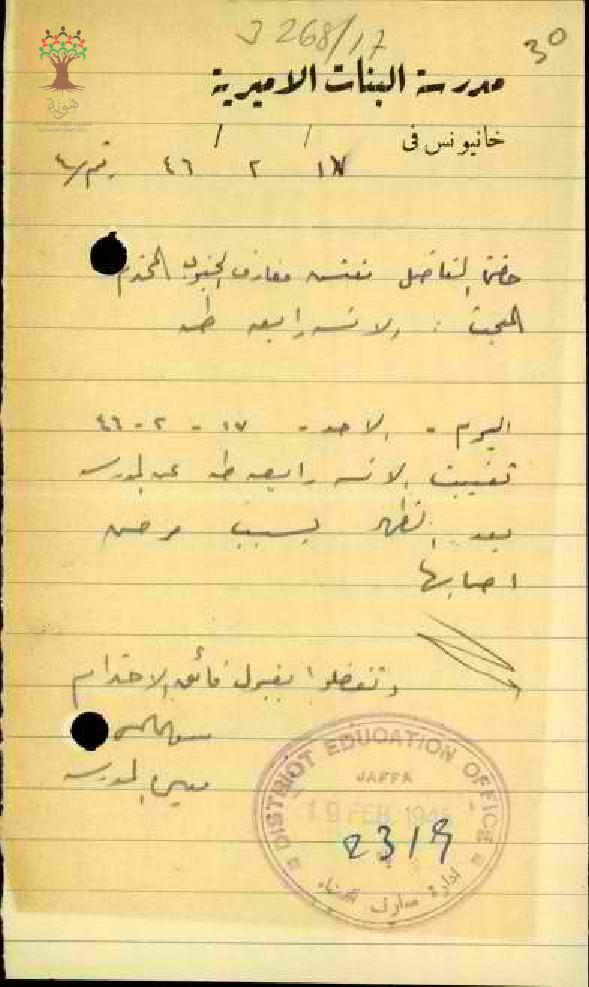 J 268/17
30
هوية
مدرسة البنات الاميرية
خانيونس فى
١٧ / ٢ / ٤٦
حضرة الفاضل مفتش معارف الجنوب المحترم
المبحث : الانسه رابعه طه
اليوم - الاحد - ١٧ - ٢ - ٤٦
تغيبت الانسه رابعه طه عن المدرسه
بعد الظهر بسبب مرض
اصابها
وتفضلوا بقبول فائق الاحترام
المدرسه
DISTRICT EDUCATION OFFICE
JAFFA
19 FEB 1946
2319
ادارة معارف اللواء